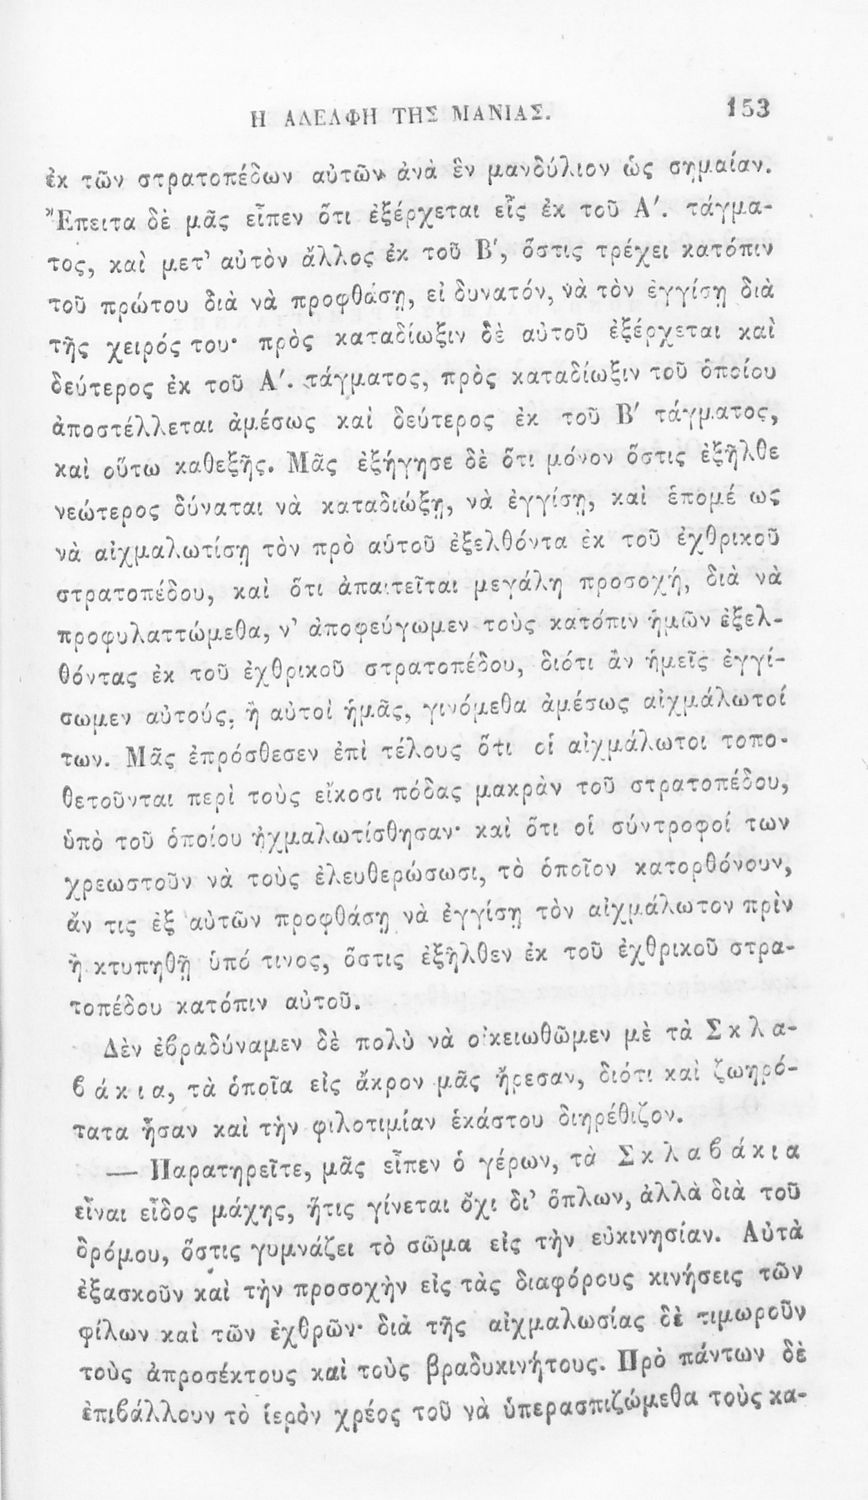 Η ΑΔΕΛΦΗ ΤΗΣ ΜΑΝΙΑΣ. 153
ἐκ τῶν στρατοπέδων αὐτῶν ἀνὰ ἓν μανδύλιον ὡς σημαίαν.
Ἔπειτα δὲ μᾶς εἶπεν ὅτι ἐξέρχεται εἷς ἐκ τοῦ Α΄. τάγμα-
τος, καὶ μετ’ αὐτὸν ἄλλος ἐκ τοῦ Β΄, ὅστις τρέχει κατόπιν
τοῦ πρώτου διὰ νὰ προφθάσῃ, εἰ δυνατόν, νὰ τὸν ἐγγίσῃ διὰ
τῆς χειρός του· πρὸς καταδίωξιν δὲ αὐτοῦ ἐξέρχεται καὶ
δεύτερος ἐκ τοῦ Α΄. τάγματος, πρὸς καταδίωξιν τοῦ ὁποίου
ἀποστέλλεται ἀμέσως καὶ δεύτερος ἐκ τοῦ Β΄ τάγματος,
καὶ οὕτω καθεξῆς. Μᾶς ἐξήγησε δὲ ὅτι μόνον ὅστις ἐξῆλθε
νεώτερος δύναται νὰ καταδιώξῃ, νὰ ἐγγίσῃ, καὶ ἑπομέ ως
νὰ αἰχμαλωτίσῃ τὸν πρὸ αὑτοῦ ἐξελθόντα ἐκ τοῦ ἐχθρικοῦ
στρατοπέδου, καὶ ὅτι ἀπαιτεῖται μεγάλη προσοχή, διὰ νὰ
προφυλαττώμεθα, ν’ ἀποφεύγωμεν τοὺς κατόπιν ἡμῶν ἐξελ-
θόντας ἐκ τοῦ ἐχθρικοῦ στρατοπέδου, διότι ἂν ἡμεῖς ἐγγί-
σωμεν αὐτούς, ἢ αὐτοὶ ἡμᾶς, γινόμεθα ἀμέσως αἰχμάλωτοί
των. Μᾶς ἐπρόσθεσεν ἐπὶ τέλους ὅτι οἱ αἰχμάλωτοι τοπο-
θετοῦνται περὶ τοὺς εἴκοσι πόδας μακρὰν τοῦ στρατοπέδου,
ὑπὸ τοῦ ὁποίου ᾐχμαλωτίσθησαν· καὶ ὅτι οἱ σύντροφοί των
χρεωστοῦν νὰ τοὺς ἐλευθερώσωσι, τὸ ὁποῖον κατορθόνουν,
ἄν τις ἐξ αὐτῶν προφθάσῃ νὰ ἐγγίσῃ τὸν αἰχμάλωτον πρὶν
ἢ κτυπηθῇ ὑπό τινος, ὅστις ἐξῆλθεν ἐκ τοῦ ἐχθρικοῦ στρα-
τοπέδου κατόπιν αὐτοῦ.
Δὲν ἐβραδύναμεν δὲ πολὺ νὰ οἰκειωθῶμεν μὲ τὰ Σκλα-
βάκια, τὰ ὁποῖα εἰς ἄκρον μᾶς ἤρεσαν, διότι καὶ ζωηρό-
τατα ἦσαν καὶ τὴν φιλοτιμίαν ἑκάστου διηρέθιζον.
— Παρατηρεῖτε, μᾶς εἶπεν ὁ γέρων, τὰ Σκλαβάκια
εἶναι εἶδος μάχης, ἥτις γίνεται ὄχι δι’ ὅπλων, ἀλλὰ διὰ τοῦ
δρόμου, ὅστις γυμνάζει τὸ σῶμα εἰς τὴν εὐκινησίαν. Αὐτὰ
ἐξασκοῦν καὶ τὴν προσοχὴν εἰς τὰς διαφόρους κινήσεις τῶν
φίλων καὶ τῶν ἐχθρῶν· διὰ τῆς αἰχμαλωσίας δὲ τιμωροῦν
τοὺς ἀπροσέκτους καὶ τοὺς βραδυκινήτους. Πρὸ πάντων δὲ
ἐπιβάλλουν τὸ ἱερὸν χρέος τοῦ νὰ ὑπερασπιζώμεθα τοὺς κα-